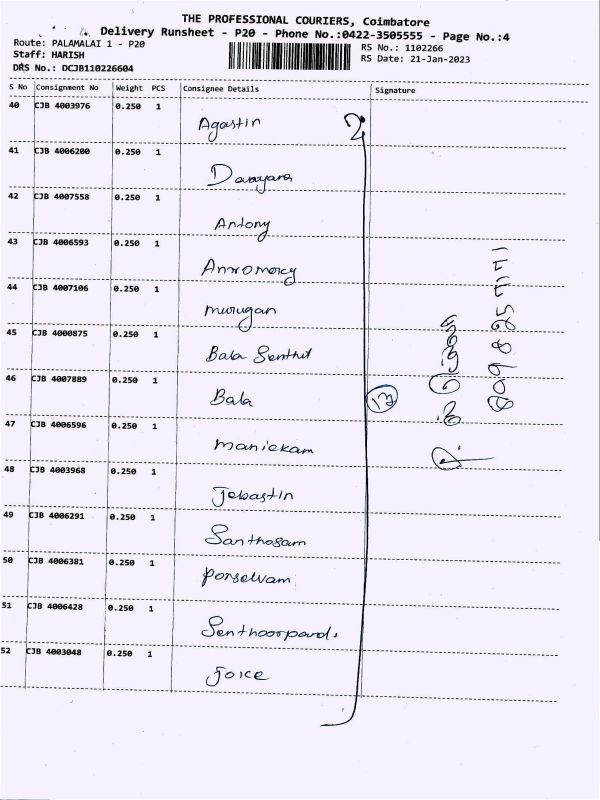 THE PROFESSIONAL COURIERS, Coimbatore
Delivery Runsheet - P20 - Phone No.:0422-3505555 - Page No.:4
Route: PALAMALAI 1 - P20
RS No.: 1102266
Staff: HARISH
RS Date: 21-Jan-2023
DRS No.: DCJB110226604
S No Consignment No Weight PCS Consignee Details Signature
40 CJB 4003976 0.250 1 Agastin
41 CJB 4006200 0.250 1
42 CJB 4007558 0.250 1 Antony
43 CJB 4006593 0.250 1
44 CJB 4007106 0.250 1 murugan
45 CJB 4000875 0.250 1 Bala Senthil
46 CJB 4007889 0.250 1 Bala
13
47 CJB 4006596 0.250 1 manickam
48 CJB 4003968 0.250 1 Jebastin
49 CJB 4006291 0.250 1 Santhosam
50 CJB 4006381 0.250 1 Ponselvam
51 CJB 4006428 0.250 1
52 CJB 4003048 0.250 1 Joice